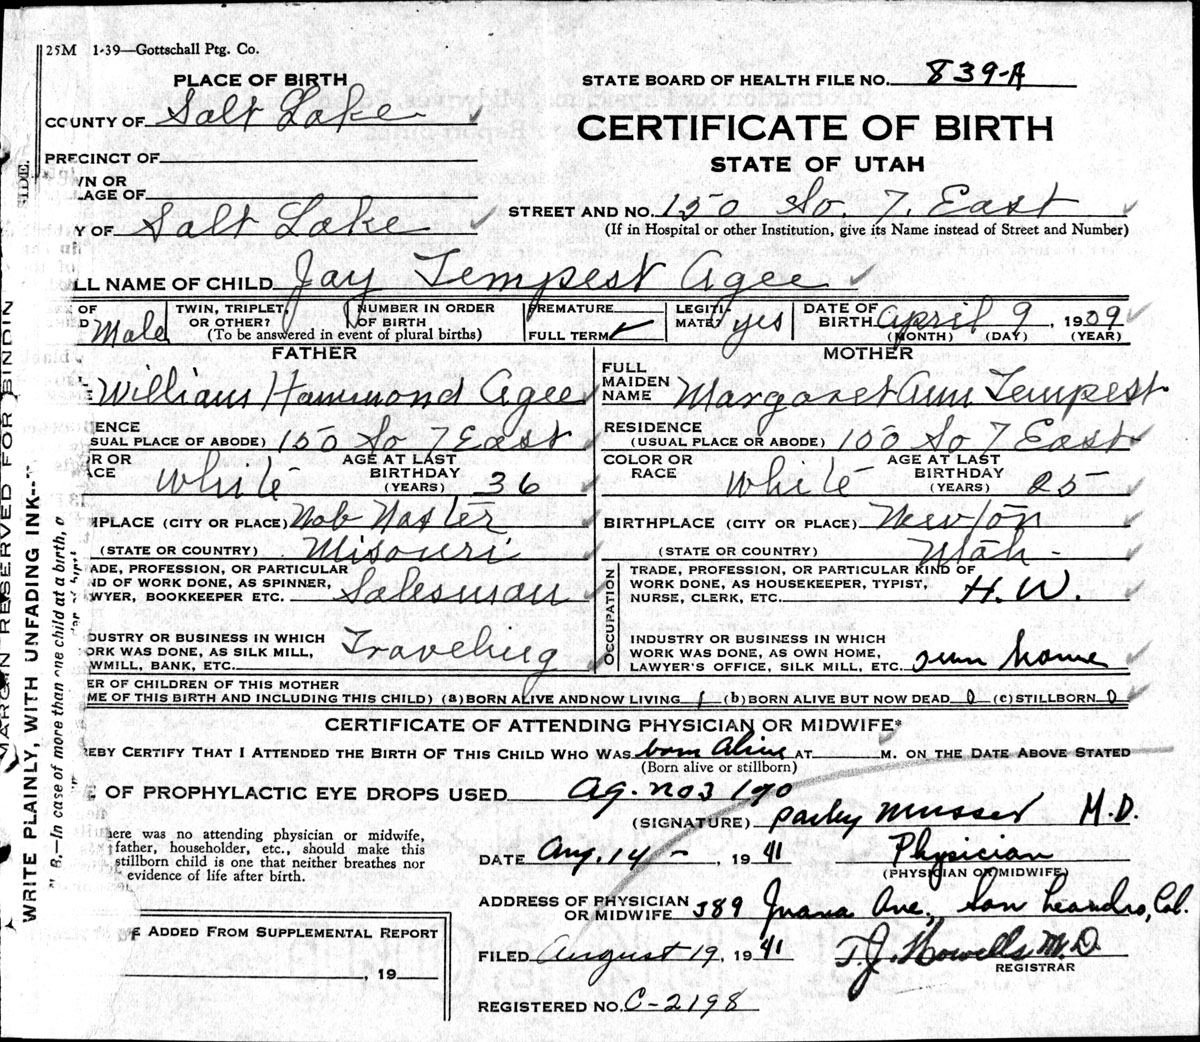 25M 1-39—Gottschall Ptg. Co.
PLACE OF BIRTH
STATE BOARD OF HEALTH FILE NO. 839-A
COUNTY OF Salt Lake
CERTIFICATE OF BIRTH
PRECINCT OF
STATE OF UTAH
WN OR
LAGE OF
STREET AND NO. 150 So. 7. East
(If in Hospital or other Institution, give its Name instead of Street and Number)
Y OF Salt Lake
LL NAME OF CHILD Jay Tempest Agee
OF Male
TWIN, TRIPLET, OR OTHER?
NUMBER IN ORDER OF BIRTH
(To be answered in event of plural births)
PREMATURE
FULL TERM ✓
LEGITIMATE? yes
DATE OF BIRTH April 9, 1909
(MONTH) (DAY) (YEAR)
FATHER
William Hammond Agee
ENCE
SUAL PLACE OF ABODE) 150 So 7 East
R OR
CE White
AGE AT LAST BIRTHDAY (YEARS) 36
HPLACE (CITY OR PLACE) Nob
(STATE OR COUNTRY) Misouri
ADE, PROFESSION, OR PARTICULAR
ND OF WORK DONE, AS SPINNER,
WYER, BOOKKEEPER ETC. Salesman
DUSTRY OR BUSINESS IN WHICH
ORK WAS DONE, AS SILK MILL,
WMILL, BANK, ETC. Traveling
MOTHER
FULL MAIDEN NAME Margaret Ann Tempest
RESIDENCE
(USUAL PLACE OR ABODE) 150 So 7 East
COLOR OR RACE White
AGE AT LAST BIRTHDAY (YEARS) 25
BIRTHPLACE (CITY OR PLACE) Newton
(STATE OR COUNTRY) Utah -
OCCUPATION
TRADE, PROFESSION, OR PARTICULAR KIND OF
WORK DONE, AS HOUSEKEEPER, TYPIST,
NURSE, CLERK, ETC. H. W.
INDUSTRY OR BUSINESS IN WHICH
WORK WAS DONE, AS OWN HOME,
LAWYER'S OFFICE, SILK MILL, ETC. own home
ER OF CHILDREN OF THIS MOTHER
ME OF THIS BIRTH AND INCLUDING THIS CHILD) (a) BORN ALIVE AND NOW LIVING 1 (b) BORN ALIVE BUT NOW DEAD 0 (c) STILLBORN 0
CERTIFICATE OF ATTENDING PHYSICIAN OR MIDWIFE*
EBY CERTIFY THAT I ATTENDED THE BIRTH OF THIS CHILD WHO WAS born alive AT M. ON THE DATE ABOVE STATED
(Born alive or stillborn)
E OF PROPHYLACTIC EYE DROPS USED Ag. no3 1%
(SIGNATURE) Parley Musser M.D.
here was no attending physician or midwife,
father, householder, etc., should make this
stillborn child is one that neither breathes nor
evidence of life after birth.
DATE Aug. 14 -, 1941 Physician
(PHYSICIAN OR MIDWIFE)
ADDRESS OF PHYSICIAN OR MIDWIFE 389 Juana Ave., San Leandro, Cal.
E ADDED FROM SUPPLEMENTAL REPORT
, 19
FILED August 19, 1941 T. J. Howells M.D.
REGISTRAR
REGISTERED NO. C-2198
MARGIN RESERVED FOR BINDIN
WRITE PLAINLY, WITH UNFADING INK--
B,—In case of more than one child at a birth, a
SIDE.